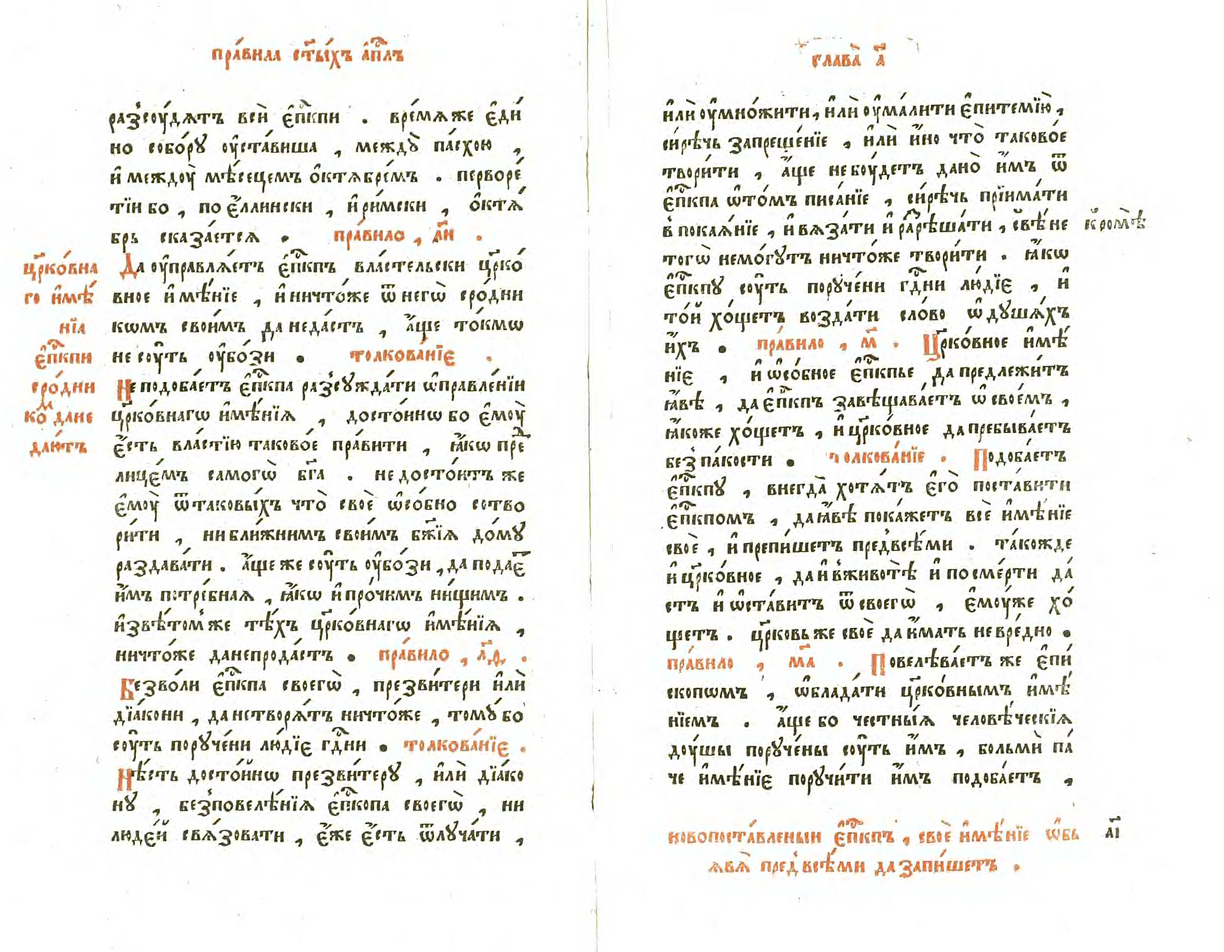 пра́вила ст҃ы́хъ а҆п҃лъ
разсоу́дѧтъ всѝ є҆пⷭ҇кпи . вре́мѧже є҆ди
но собо́рꙋ оу҆ста́виша , междꙋ̀ па́схою ,
и҆ междоу̀ мѣ́сецемъ о҆ктѧ́бремъ . перворе́
тїи бо , по є҆́ллински , и҆ ри́мски , о҆ктѧ́
брь сказа́етсѧ . пра́вило , л҃и .
Да оу҆правлѧ́етъ є҆пⷭ҇кпъ вла́стельски цр҃ко́
вное и҆мѣ́нїе , и҆ ничто́же ѿ негѡ̀ сро́дни
кѡмъ свои́мъ да неда́стъ , а҆́ще то́кмѡ
не соу́ть оу҆бо́зи . толкова́нїє .
Не подоба́етъ є҆пⷭ҇кпа разсꙋжда́ти ѡ҆правле́нїи
цр҃ко́внагѡ и҆мѣ́нїѧ , досто́йнѡ бо є҆моу̀
є҆́сть вла́стїю таково́е пра́вити , ꙗ҆́кѡ преⷣ
лице́мъ самогѡ̀ бг҃а . не досто́итъ же
є҆моу̀ ѿтаковы́хъ что̀ своѐ ѡ҆со́бно сотво
ри́ти , ни бли́жнимъ свои́мъ бж҃їѧ до́мꙋ
раздава́ти . а҆́ще же соу́ть оу҆бо́зи , да подае́
и҆́мъ потре́бнаѧ , ꙗ҆́кѡ и҆ про́чимъ ни́щимъ .
и҆звѣ́томже тѣ́хъ цр҃ко́внагѡ и҆мѣ́нїѧ ,
ничто́же данепрода́стъ . пра́вило , л҃д .
Безво́ли є҆пⷭ҇кпа своегѡ̀ , презви́тери и҆лѝ
дїа́кони , да нетворѧ́тъ ничто́же , томꙋ̀ бо
соу́ть порꙋче́ни лю́дїе гдⷭ҇ни . толкова́нїє .
Нѣ́сть досто́йнѡ презви́терꙋ , и҆лѝ дїа́ко
нꙋ , безповелѣ́нїѧ є҆пⷭ҇копа своегѡ̀ , ни
люде́й свѧ́зовати , є҆́же є҆́сть ѿлꙋча́ти ,
цр҃ко́вна
го и҆мѣ́
нїѧ
є҆пⷭ҇кпи
сро́дни
ко́ⷨ дане
даю́тъ
глава̀ а҃
и҆лѝ оу҆мно́жити , и҆лѝ оу҆ма́лити є҆питемїю̀ ,
си́рѣчь запреще́нїе , и҆лѝ и҆́но что̀ таково́е
твори́ти , а҆́ще не боу́детъ дано̀ и҆́мъ ѿ
є҆пⷭ҇кпа ѡ҆то́мъ писа́нїе , си́рѣчь прїима́ти
в покаѧ́нїе , и҆ вѧза́ти и҆ раⷥрѣша́ти , свѣ́не
тогѡ̀ немо́гꙋтъ ничто́же твори́ти . ꙗ҆́кѡ
є҆пⷭ҇кпꙋ соу́ть порꙋче́ни гдⷭ҇ни лю́дїе , и҆
то́й хо́щетъ возда́ти сло́во ѡ҆ дꙋша́хъ
и҆́хъ . пра́вило , м҃ . Цр҃ко́вное и҆мѣ́
нїе , и҆ ѡ҆со́бное є҆пⷭ҇кпье да предлежи́тъ
ꙗ҆́вѣ , да є҆пⷭ҇кпъ завѣщава́етъ ѡ҆ свое́мъ ,
ꙗ҆́коже хо́щетъ , и҆ цр҃ко́вное да пребыва́етъ
без па́кости . толкова́нїе . Подоба́етъ
є҆пⷭ҇кпꙋ , внегда̀ хотѧ́тъ є҆го̀ поста́вити
є҆пⷭ҇кпомъ , да ꙗ҆́вѣ пока́жетъ всѐ и҆мѣ́нїе
своѐ , и҆ препи́шетъ предвсѣ́ми . та́кожде
и҆ цр҃ко́вное , да и҆ вживотѣ̀ и҆ посме́рти да́
стъ и҆ ѡ҆ста́витъ ѿ своегѡ̀ , є҆моу́же хо́
щетъ . цр҃ковь же своѐ да и҆́мать невре́дно .
пра́вило , м҃а . Повелѣва́етъ же є҆пи́
скопѡмъ , ѡ҆блада́ти цр҃ко́внымъ и҆мѣ́
нїемъ . а҆́ще бо честны́ѧ человѣ́ческїѧ
доу́шы порꙋче́ны соу́ть и҆́мъ , больмѝ па́
че и҆мѣ́нїе порꙋчи́ти и҆́мъ подоба́етъ ,
кромѣ̀
новопоста́вленыи є҆пⷭ҇кпъ , своѐ и҆мѣ́нїе ѡ҆бь
ꙗвѧ̀ предвсѣ́ми да запи́шетъ .
а҃і